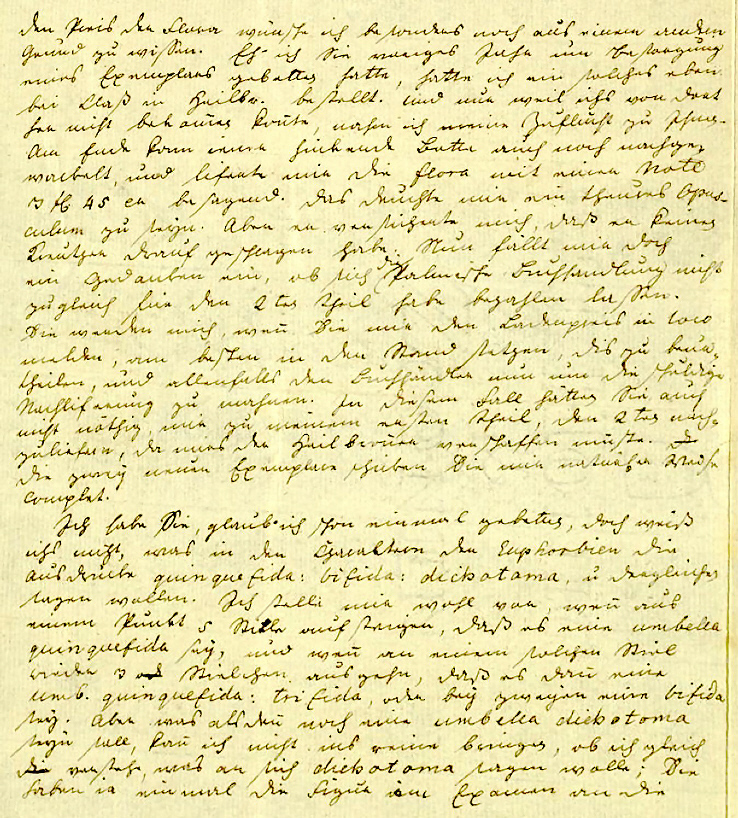 den Preis der Flora wünsche ich besonders noch aus einem andern
Grund zu wissen. Eh' ich Sie voriges Jahr um Besorgung
eines Exemplars gebetten hatte, hatte ich ein solches eben
bei Claß in Heilbr. bestellt. und nun weil ichs von dort
her nicht bekom̅en kon̅te, nahm ich meine Zuflucht zu Ihnen.
Am Ende kam jener hinkende Botte auch noch nachge,
wackelt, und liferte mir die Flora mit einer Note
3 fl 45 er besagend. Das deuchte mir ein theures Opus,
culum zu seyn. Aber er versicherte mich, daß er keinen
Kreutzer drauf geschlagen habe. Nun fällt mir doch
ein Gedanken ein, ob sich die Palmische Buchhandlung nicht
zugleich für den 2ten Theil habe bezahlen lassen.
Sie werden mich, wen̅ Sie mir den Ladenpreis in loco
melden, am besten in den Stand setzen, dis zu beur,
theilen, und allenfalls den Buchhändler nun um die schuldige
Nachliferung zu mahnen. In diesem Fall hätten Sie auch
nicht nöthig, mir zu meinem ersten Theil, den 2ten nach,
zuliefern, da mirs der Heilbron̅er verschaffen müste.
die zwey neuen Exemplare schieben Sie mir natürlicher Weise
complet.
Ich habe Sie, glaub' ich schon einmal gebeten, doch weiß
ichs nicht, was in den Charakteren der Euphorbien die
Ausdrücke quinquefida: bifida: dichotoma, u dergleichen
sagen wollen. Ich stelle mir wohl vor, wen̅ aus
einem Punkt 5 Stiele aufsteigen, daß es eine umbella
quinquefida sey, und wen̅ an einem solchen Stiel
wieder 3 Stielchen ausgehn, daß es dan̅ eine
umb. quinquefida: trifida, oder bey zweyen eine bifida
sey. Aber was alsden̅ noch eine umbella dichotoma
seyn soll, kan̅ ich nicht ins reine bringen, ob ich gleich
verstehe, was an sich dichotoma sagen wolle; Sie
haben ja einmal die Figur im Examen an die